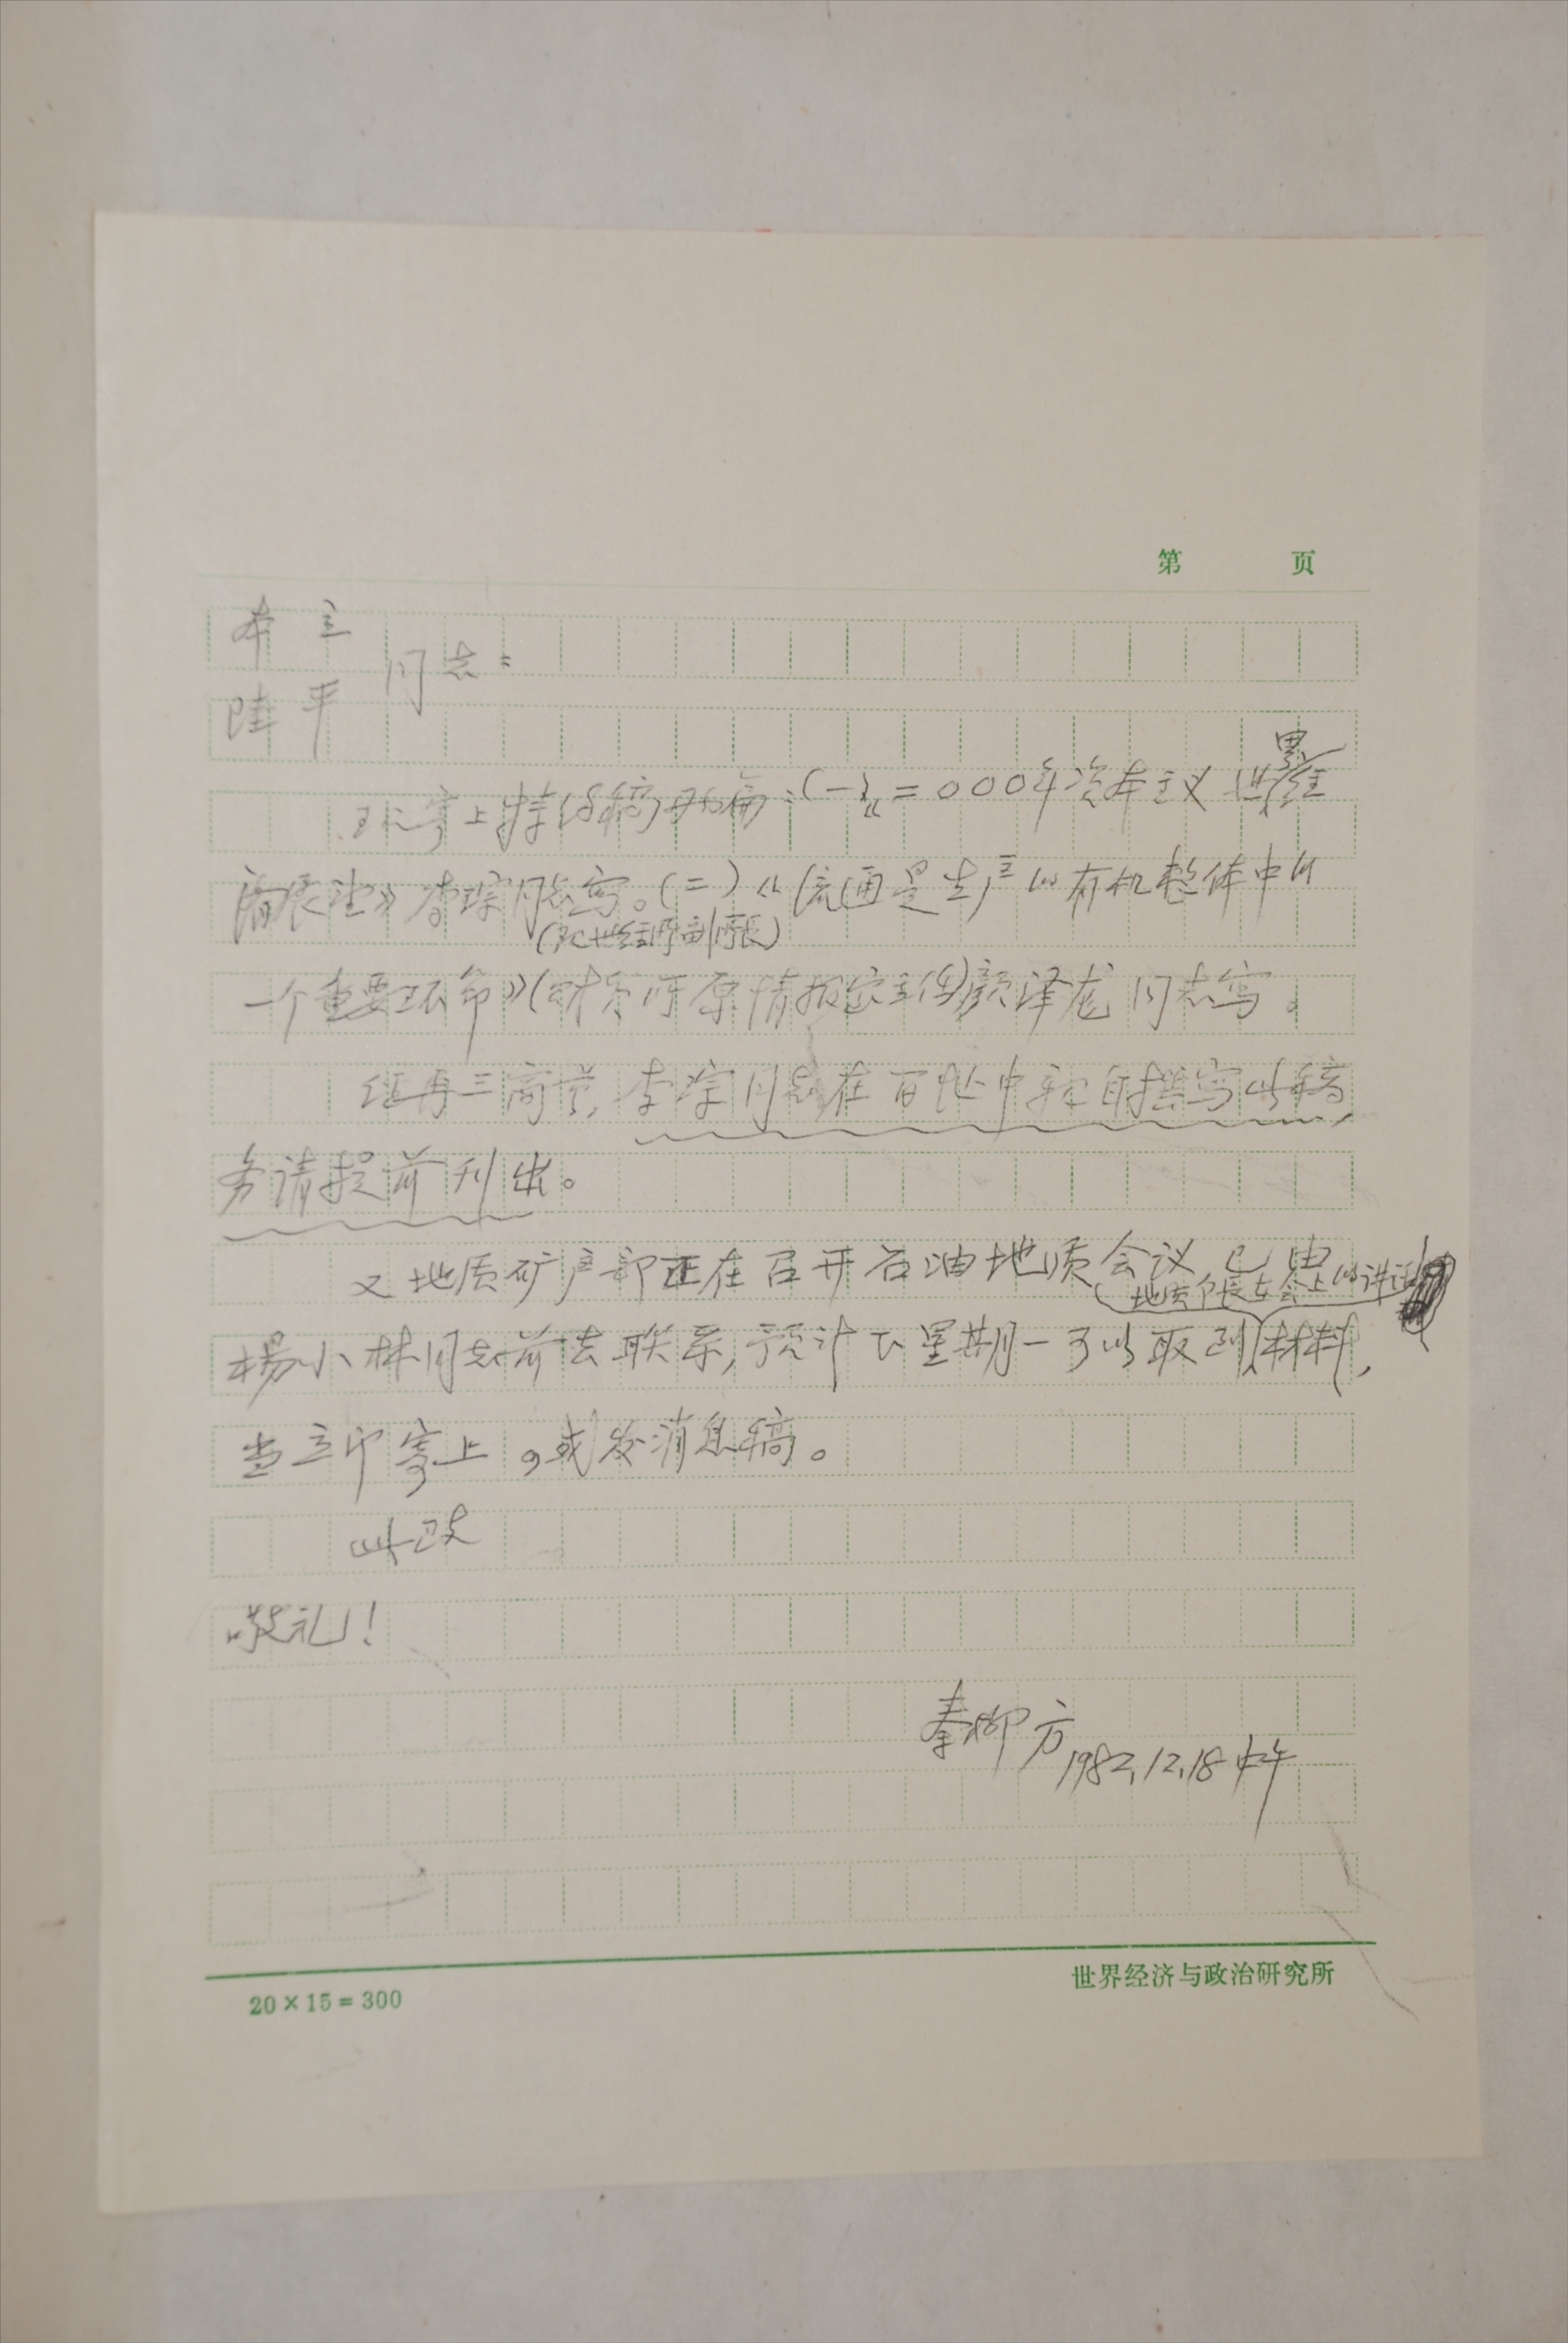 第 页
本立
陆平 同志：
现寄上特约稿两篇：（一）《二000年资本主义世界经
济展望》李琮同志写。（二）《流通是生产的有机整体中的
（现世经所副所长）
一个重要环节》（财贸所原情报室主任）颜泽龙同志写。
经再三商量，李琮同志在百忙中亲自撰写此稿
务请提前刊出。
又地质矿产部正在召开石油地质会议，已由
地质部长在会上的讲话
杨小林同志前去联系，预计下星期一可以取到材料，
当立即寄上，或发消息稿。
此致
敬礼！
秦柳方
1982，12，18中午
20×15=300
世界经济与政治研究所